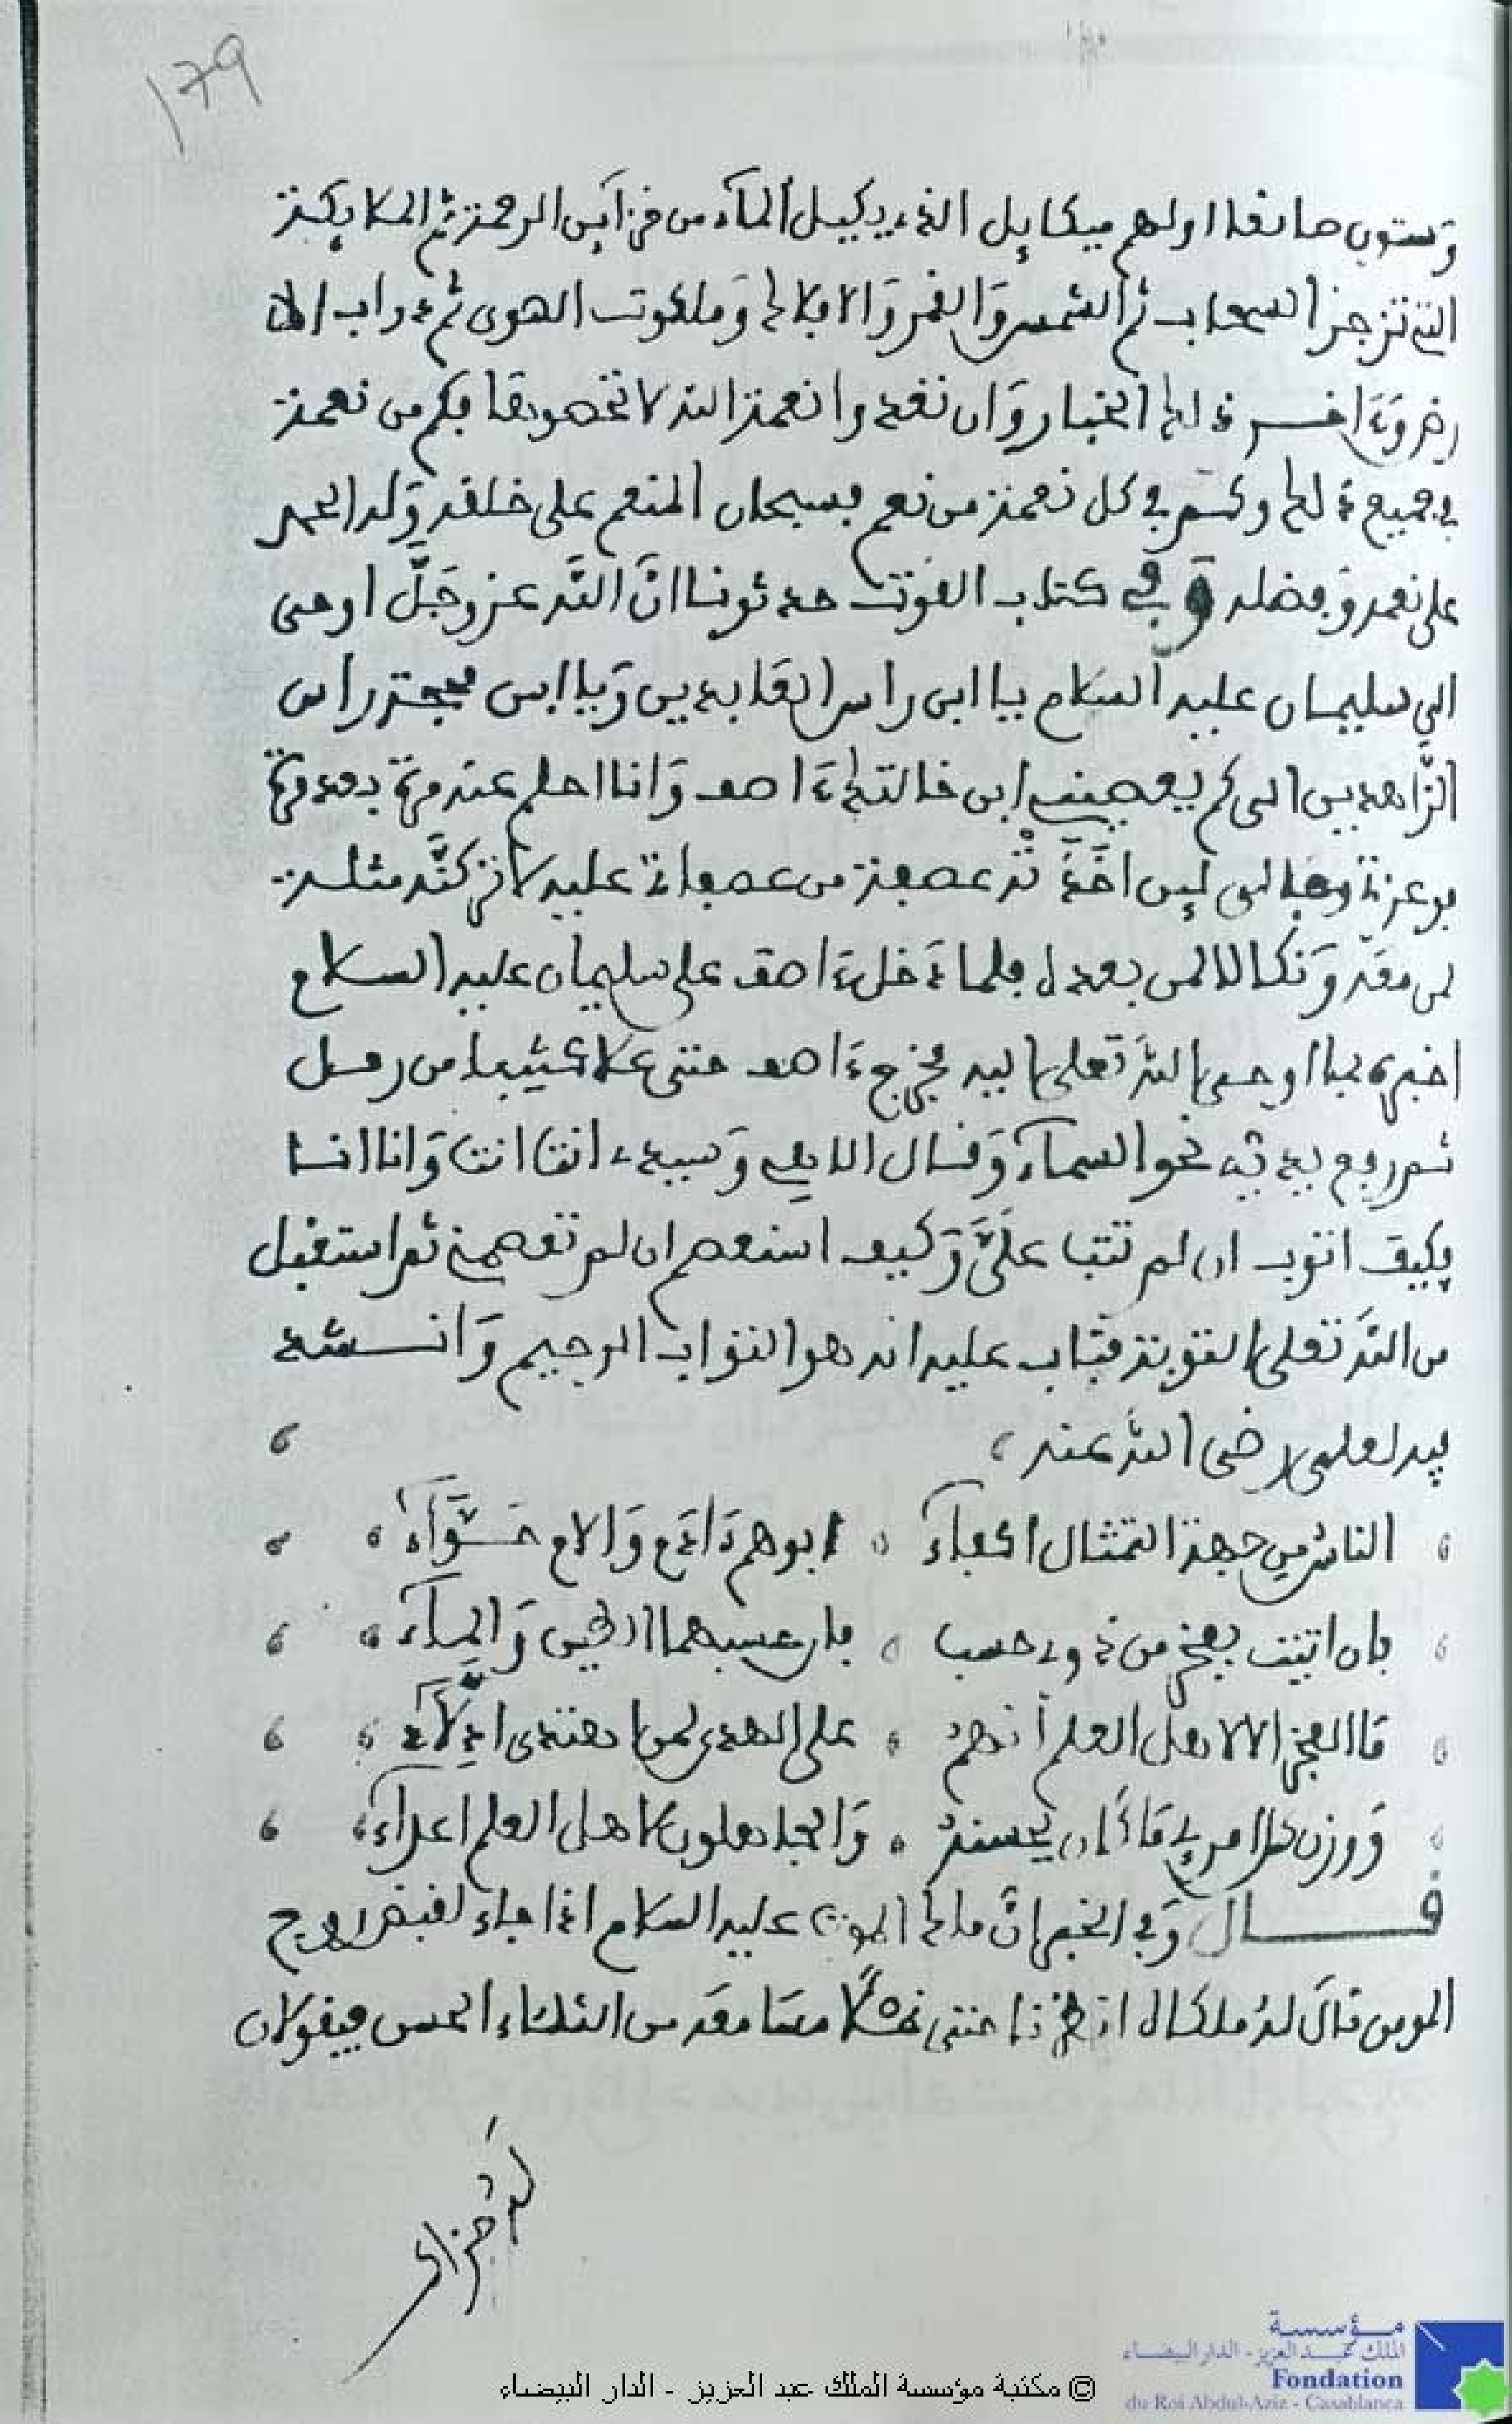 ١٧٩
وستون صانعا اولهم ميكايل الذي يكيل المآء من خزاين الرحمة ثم الملايكة
التي تزجر السحاب ثم الشمس والقمر والافلاك وملكوت الهوى ثم دواب الا
رض وءاخر ذلك الخباز وان تعدوا نعمة الله لا تحصوها فكم من نعمة
في جميع ذلك وكم في كل نعمة من نعم فسبحان المنعم على خلقه وله الحمد
على نعمه وفضله وفي كتاب القوت حدثونا انَّ الله عز وجَلَّ اوحى
الى سليمان عليه السلام يا ابن راس العابدين ويا ابن محجة راس
الزَّاهدين الى كم يعصيني ابن خالتك ءاصف وانا احلم عنه مرة بعد مرة
فوعزتي وجلالي لين اخذته عصفة من عصفاتي عليه لاتركنَّه مثلة
لمن معه ونكالا لمن بعده فلما دخل ءاصف على سليمان عليه السلام
اخبره بما اوحى الله تعلى اليه فخرج ءاصف حتى علا كثيبا من رمل
ثم رفع يديه نحو السمآء وقال الاهي وسيدي انت انت وانا انا
فكيف اتوب ان لم تتب عليَّ وكيف استعصم ان لم تعصمني ثم استقبل
من الله تعلى التوبة فتاب عليه انه هو التواب الرحيم وانشد
فيه لعلي رضى الله عنه
الناس من جهة التمثال اكفآء ابوهم ءادم والام حَوَّآء
فان اتيت بفخر من ذوي حسب فان حسبهما الطين والمآء
ما الفخر الا لاهل العلم انهم على الهدى لمن اهتدى ادلآء
ووزن كل امرئ ما كان يحسنه والجاهلون لاهل العلم اعدآء
قال وفي الخبر انَّ ملك الموت عليه السلام اذا جاء لقبض روح
المومن قال له ملكاه انظرنا حتى معه من الثناء الحسن فيقولان
له جزاك
مؤسسة
الملك عبد العزيز - الدار البيضاء
Fondation
du Roi Abdul-Aziz - Casablanca
© مكتبة مؤسسة الملك عبد العزيز - الدار البيضاء